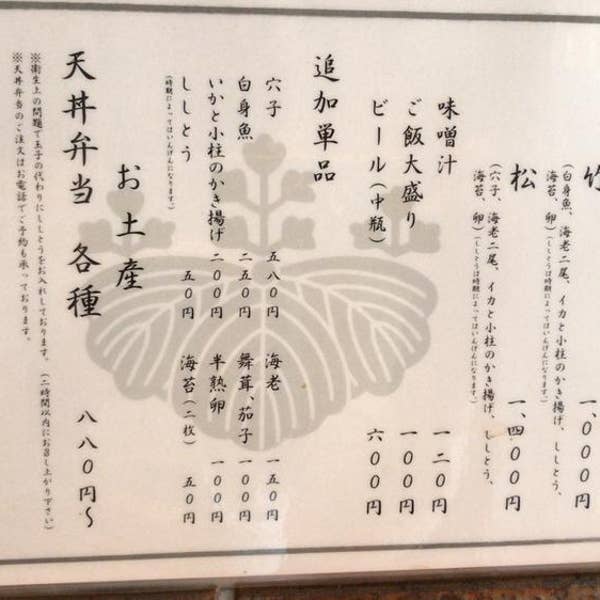 竹
(白身魚、海老二尾、イカと小柱のかき揚げ、ししとう、
海苔、卵)(ししとうは時期によってはいんげんになります。)
一、〇〇〇円
松
(穴子、海老二尾、イカと小柱のかき揚げ、ししとう、
海苔、卵)(ししとうは時期によってはいんげんになります。)
一、四〇〇円
味噌汁 一二〇円
ご飯大盛り 一〇〇円
ビール(中瓶) 六〇〇円
追加単品
穴子 五八〇円
白身魚 二五〇円
いかと小柱のかき揚げ 二〇〇円
ししとう 五〇円
(時期によってはいんげんになります。)
海老 一五〇円
舞茸、茄子 一〇〇円
半熟卵 一〇〇円
海苔(二枚) 五〇円
お土産
天丼弁当 各種 八八〇円~
※衛生上の問題で玉子の代わりにししとうをお入れしております。(二時間以内にお召し上がり下さい)
※天丼弁当のご注文はお電話でご予約も承っております。